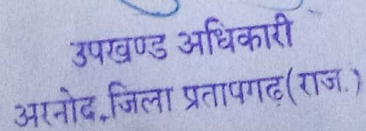 उपखण्ड अधिकारी
अरनोद, जिला प्रतापगढ़ (राज.)